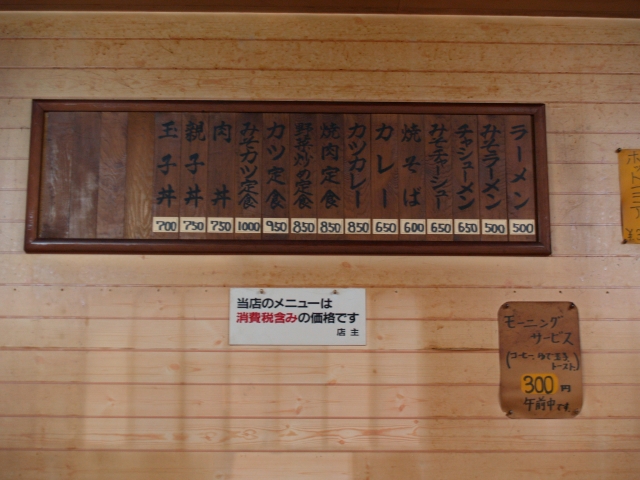 ラーメン 500
みそラーメン 500
チャシューメン 650
みそチャーシュー 650
焼そば 600
カレー 650
カツカレー 850
焼肉定食 850
野菜炒め定食 850
カツ定食 950
みそカツ定食 1000
肉丼 750
親子丼 750
玉子丼 700
当店のメニューは
消費税含みの価格です
店主
モーニング
サービス
(コーヒー、ゆで玉子、
トースト)
300円
午前中です